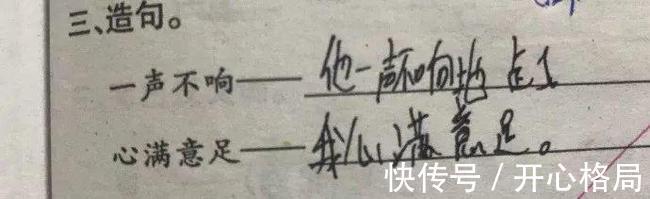 三、造句。
一声不响——他一声不响地走了
心满意足——我心满意足。
快传号／开心格局